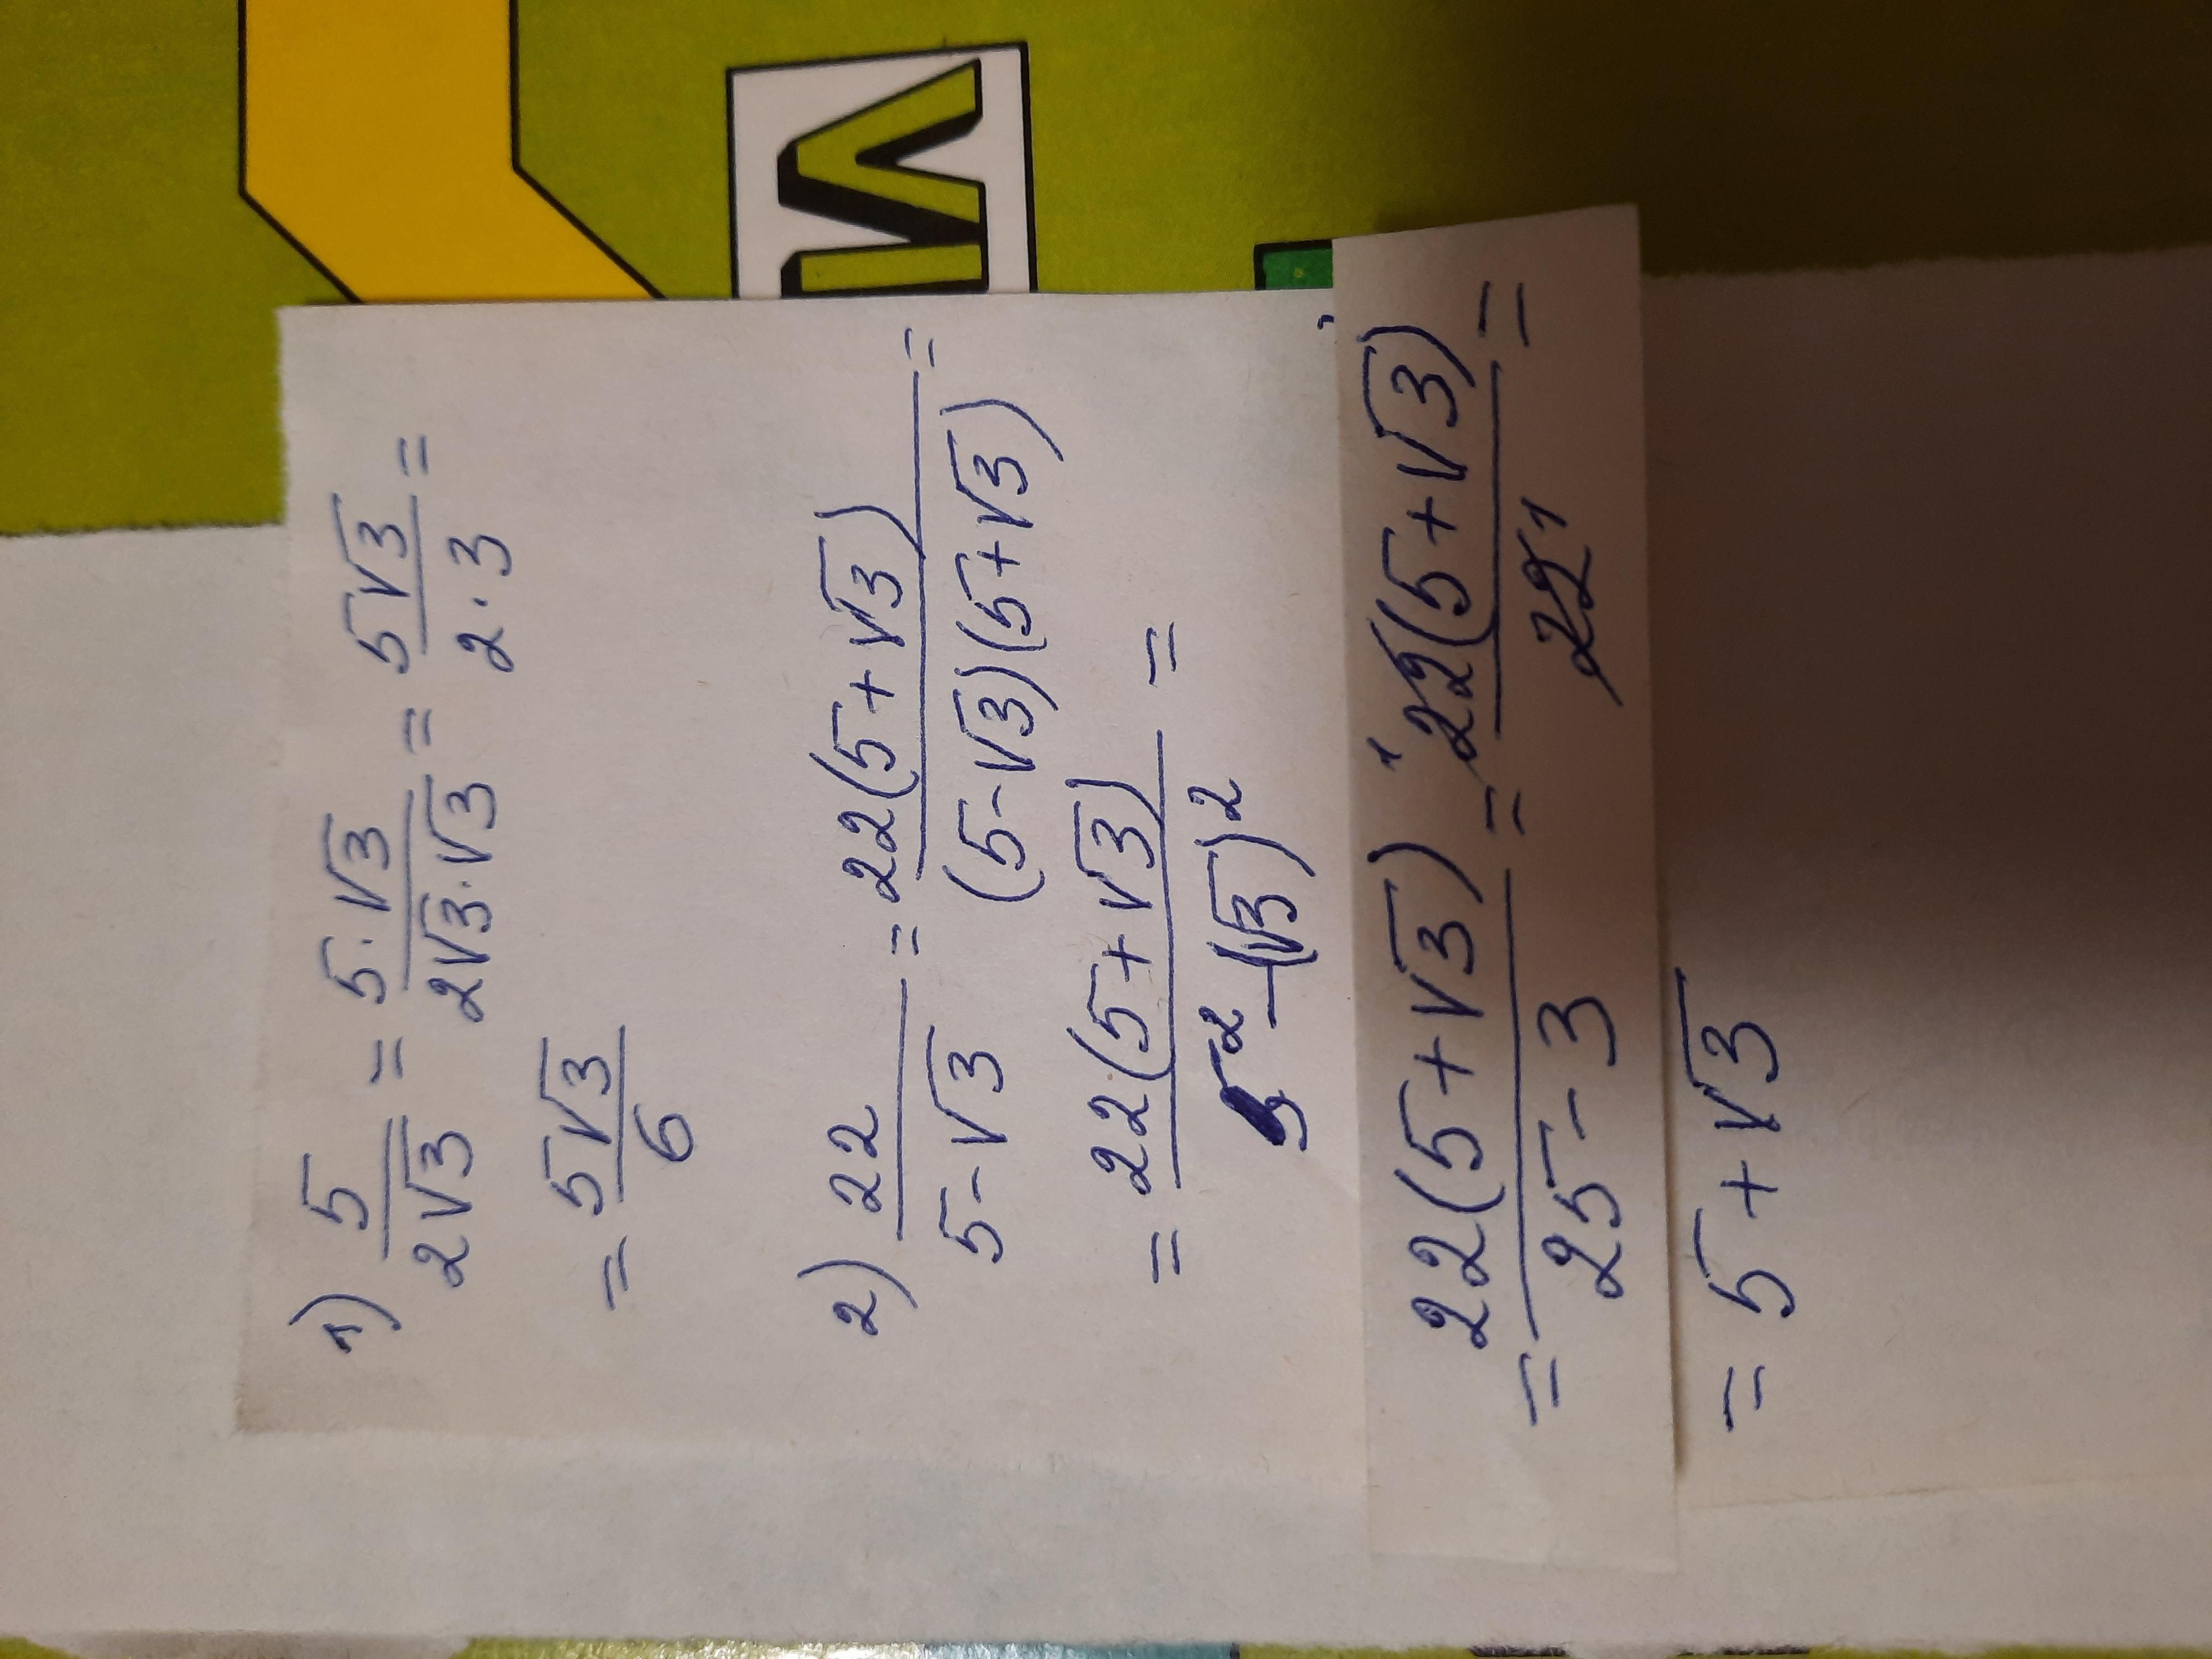 1) 5/2√3 = 5·√3/2√3·√3 = 5√3/2·3 =
= 5√3/6
2) 22/5-√3 = 22(5+√3)/(5-√3)(5+√3) =
= 22(5+√3)/5²-(√3)² =
= 22(5+√3)/25-3 = ¹22(5+√3)/22¹ =
= 5+√3